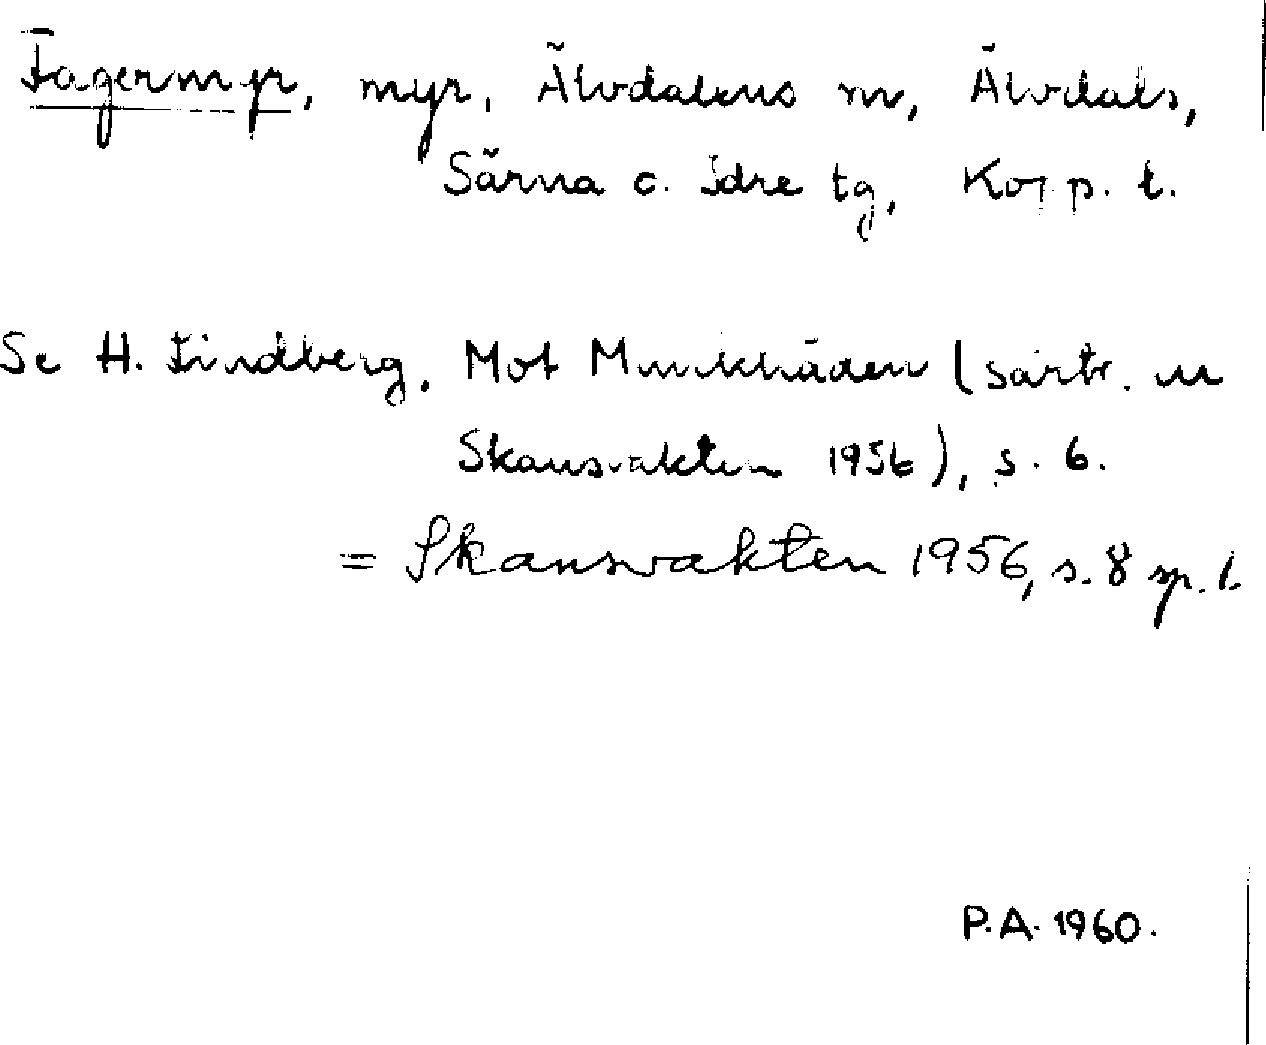 Fagermyr, myr, Älvdalens sn, Älvdals,
Särna o. Idre tg, Kopp. l.
Se H. Lindberg, Mot Munkhäden (särtr. ur
Skansvakten 1956), s. 6.
= Skansvakten 1956, s. 8 sp. 1.
P.A. 1960.